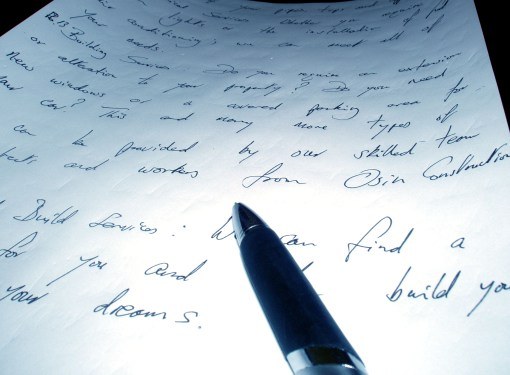 your pipe and
and services. Whether you
lights or the installation of
air conditioning; we can meet all of
your needs.
Building Services: Do you require an extension
or alteration to your property? Do you need
New windows or a covered parking area for
your car? This and many more types of
can be provided by our skilled team
and workers from Osin Construction
Build Services: We can find a
for you and build you
your dreams.